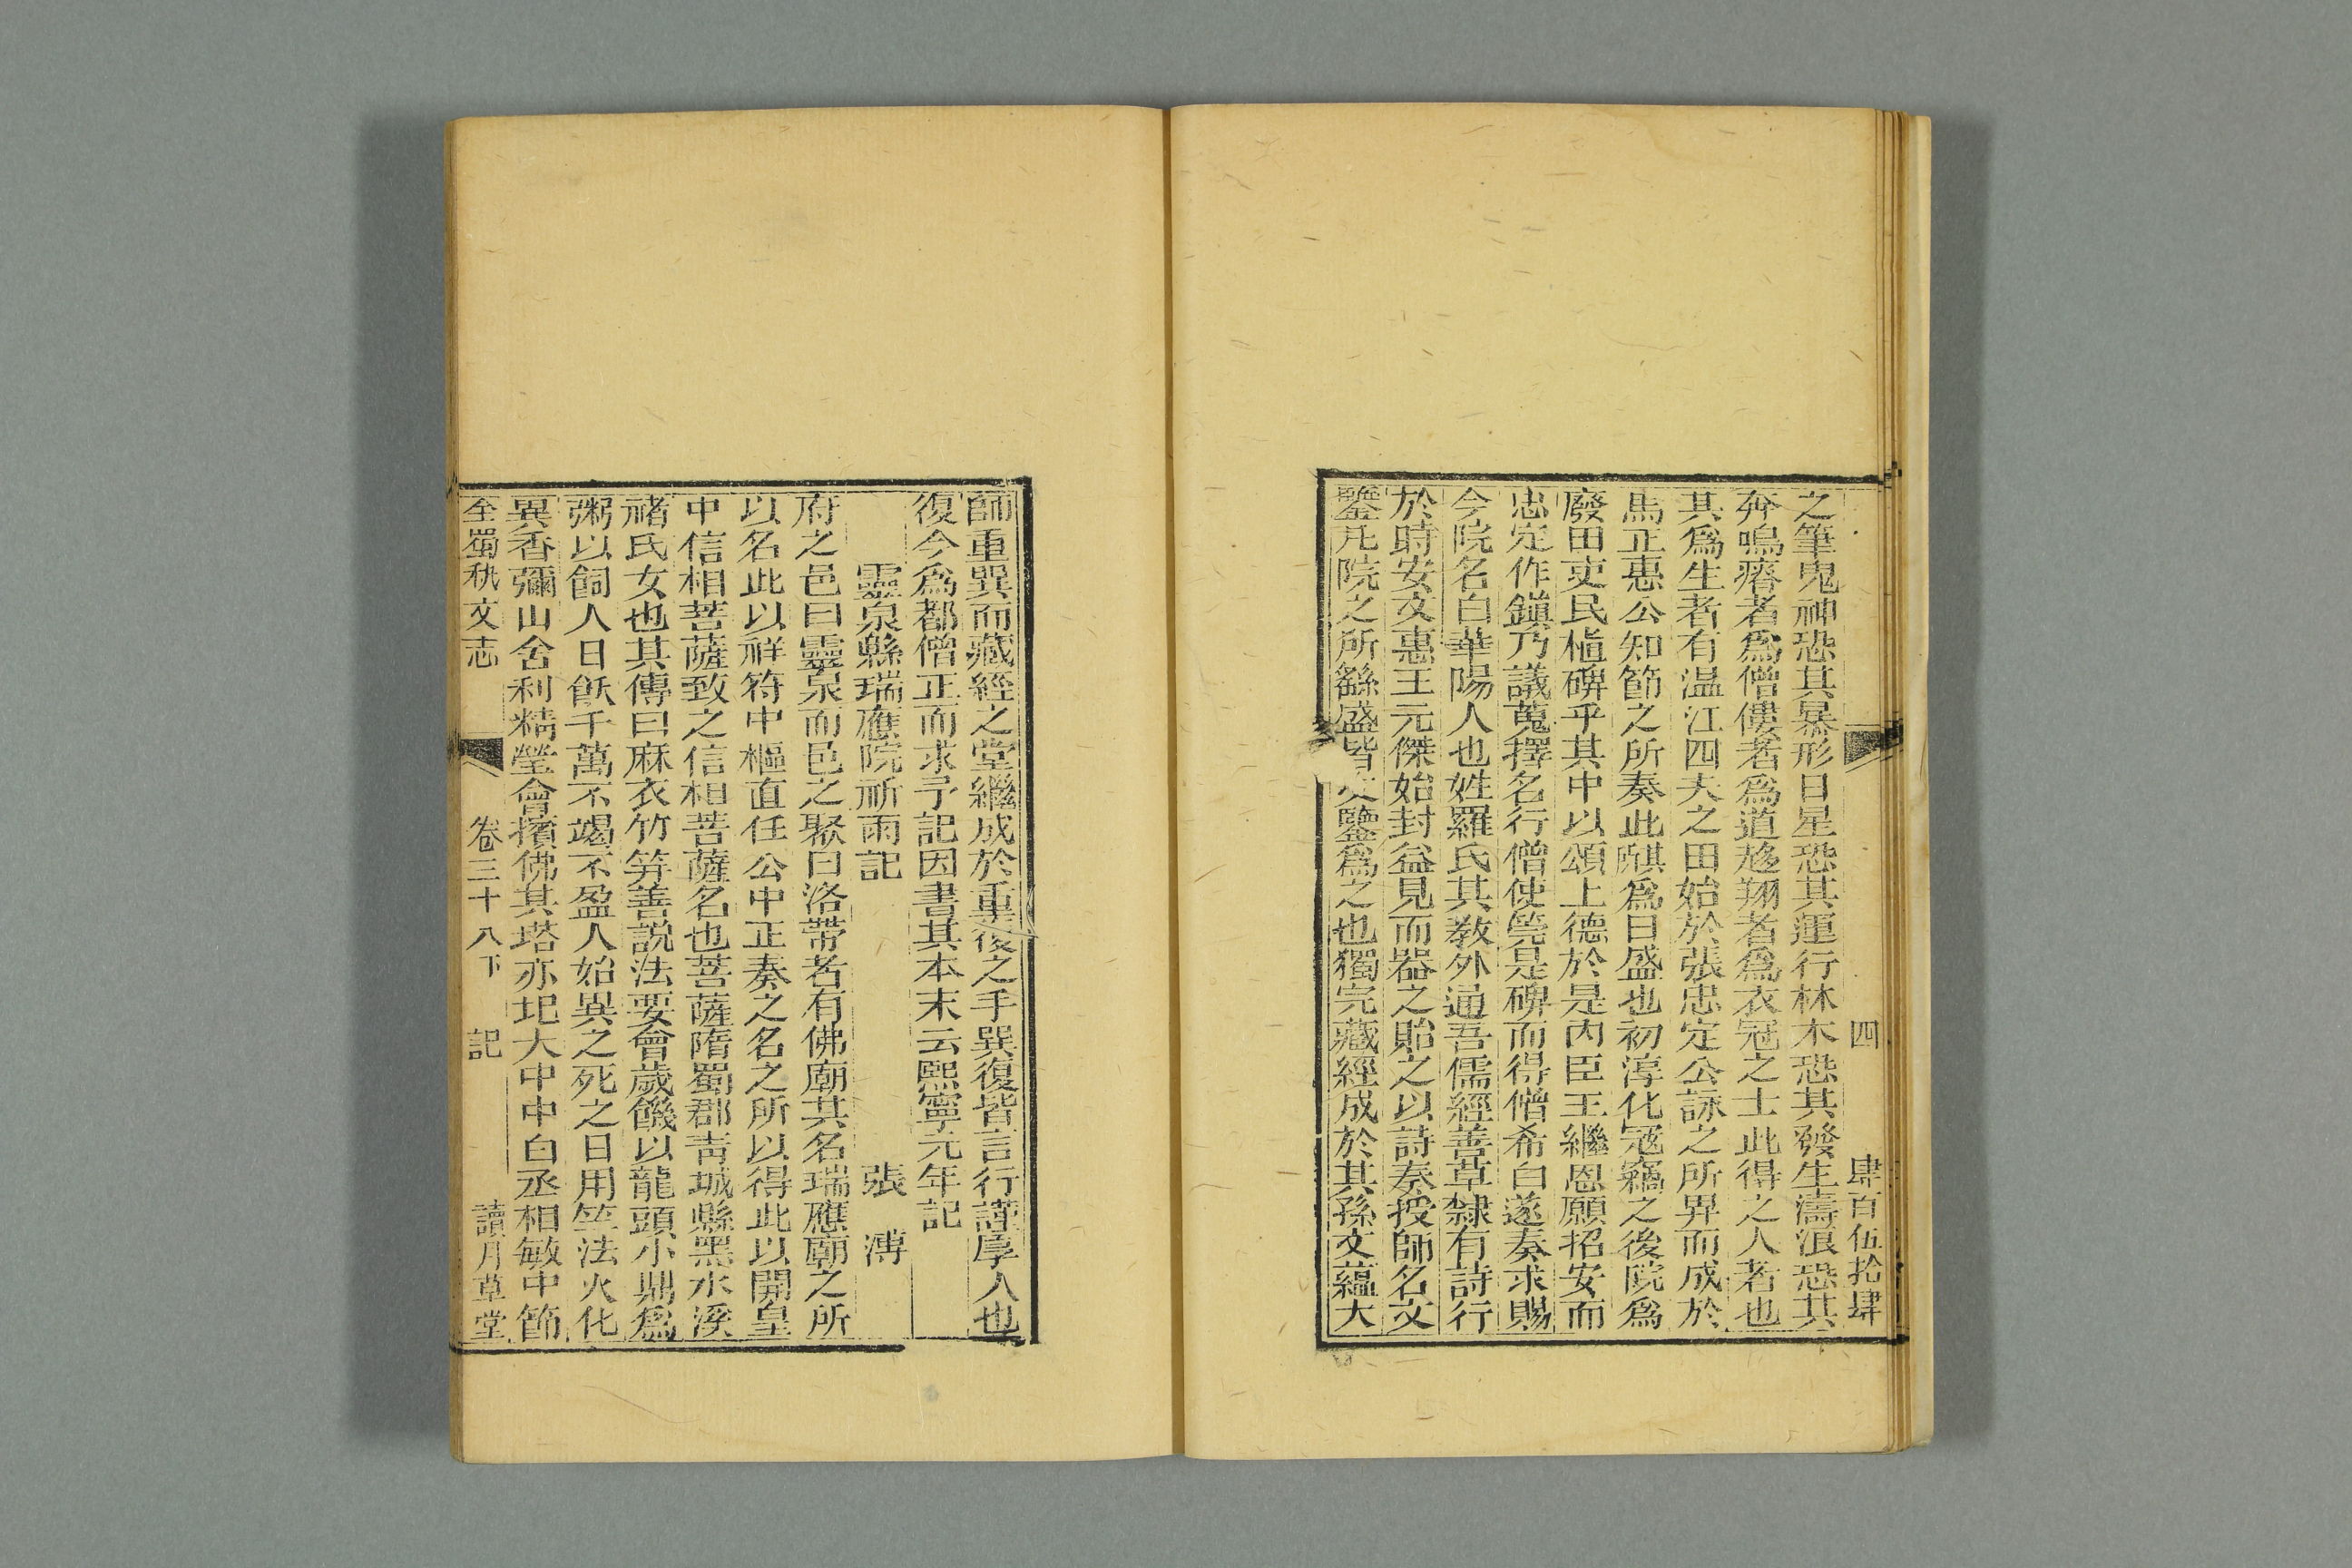 四　肆百伍拾肆
之筆鬼神恐其暴形日星恐其運行林木恐其發生濤浪恐其
奔鳴瘠者爲僧僂者爲道趍翔者爲衣冠之士此得之人者也
其爲生者有温江四夫之田始於張忠定公詠之所畀而成於
馬正惠公知節之所奏此騏爲日盛也初淳化冦竊之後院爲
廢田吏民植碑乎其中以頌上德於是内臣王繼恩願招安而
忠定作鎭乃議蒐擇名行僧使筦是碑而得僧希白遂奏求賜
今院名白華陽人也姓羅氏其教外通吾儒經善草隸有詩行
於時安文惠王元傑始封益見而器之貽之以詩奏授師名文
鑒凡院之所繇盛皆文鑒爲之也獨完藏經成於其孫文蘊大
師重巽而藏經之堂繼成於重復之手巽復皆言行謹厚人也
復今爲都僧正而求予記因書其本末云熙寧元年記
靈泉縣瑞應院祈雨記　張溥
府之邑曰靈泉而邑之聚曰洛帶者有佛廟其名瑞應廟之所
以名此以祥符中樞直任公中正奏之名之所以得此以開皇
中信相菩薩致之信相菩薩名也菩薩隋蜀郡靑城縣黑水溪
禇氏女也其傳曰麻衣竹笄善説法要會歲饑以龍頭小鼎爲
粥以飼人日飫千萬不竭不盈人始異之死之日用竺法火化
異香彌山舍利精瑩會擯佛其塔亦圯大中中白丞相敏中節
全蜀秇文志　卷三十八下　記　讀月草堂